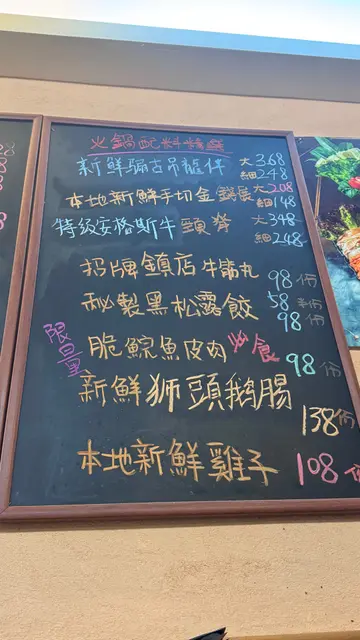 火鍋配料精選
新鮮騸古吊龍伴 大368
細248
本地新鮮手切金錢展 大208
細148
特級安格斯牛頸脊 大348
細248
招牌鎮店牛筋丸 98份
秘製黑松露餃 58半份
98份
限量 脆鯇魚皮肉 必食 98份
新鮮狮頭鹅腸
138份
本地新鮮雞子 108份